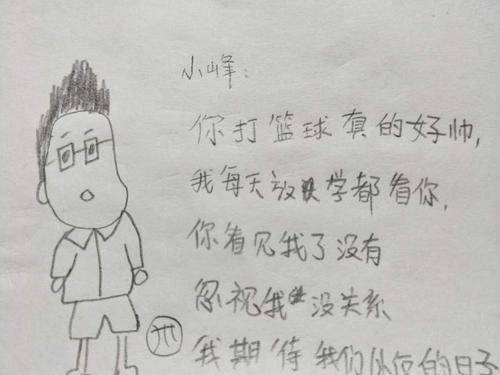 小峰：
你打篮球真的好帅，
我每天放学都看你，
你看见我了没有
忽视我没关系
我期待我们
的日子